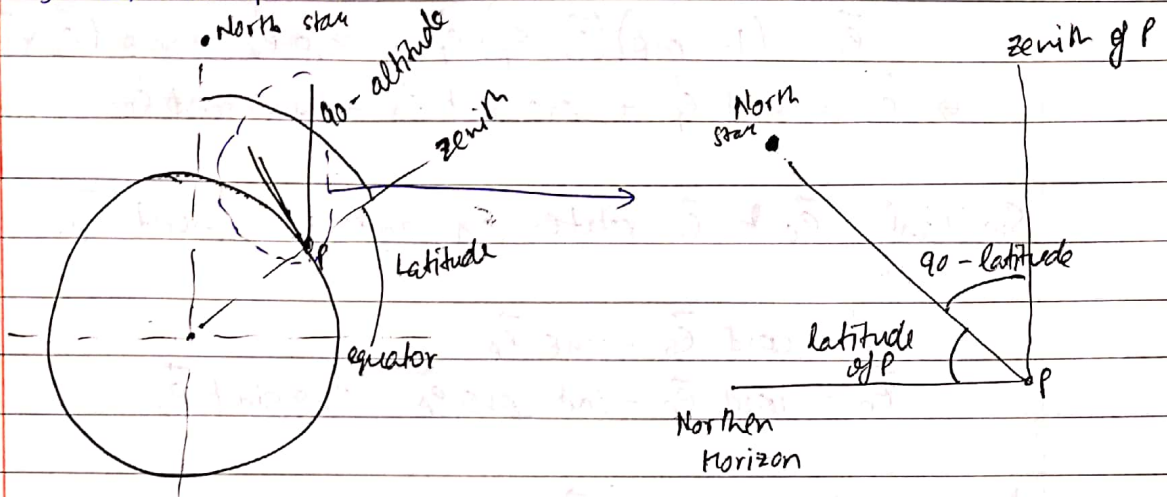 North star
90 - altitude
zenith
P
Latitude
equator
zenith of P
North
star
90 - latitude
latitude
of P
P
Northen
Horizon